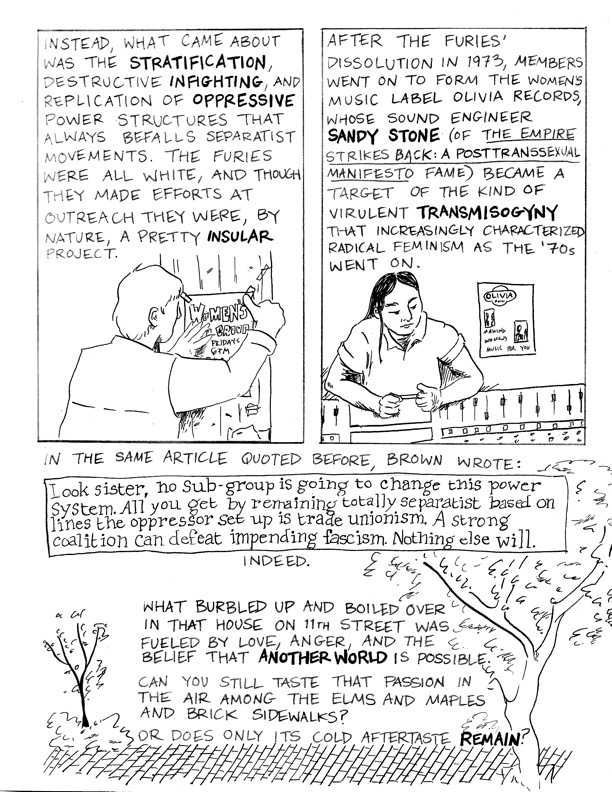 INSTEAD, WHAT CAME ABOUT
WAS THE STRATIFICATION,
DESTRUCTIVE INFIGHTING, AND
REPLICATION OF OPPRESSIVE
POWER STRUCTURES THAT
ALWAYS BEFALLS SEPARATIST
MOVEMENTS. THE FURIES
WERE ALL WHITE, AND THOUGH
THEY MADE EFFORTS AT
OUTREACH THEY WERE, BY
NATURE, A PRETTY INSULAR
PROJECT.
WOMEN'S
GROUP
FRIDAYS
6PM
AFTER THE FURIES'
DISSOLUTION IN 1973, MEMBERS
WENT ON TO FORM THE WOMEN'S
MUSIC LABEL OLIVIA RECORDS,
WHOSE SOUND ENGINEER
SANDY STONE (OF THE EMPIRE
STRIKES BACK: A POSTTRANSSEXUAL
MANIFESTO FAME) BECAME A
TARGET OF THE KIND OF
VIRULENT TRANSMISOGYNY
THAT INCREASINGLY CHARACTERIZED
RADICAL FEMINISM AS THE '70s
WENT ON.
OLIVIA
MAKING
WOMEN'S
MUSIC FOR YOU
IN THE SAME ARTICLE QUOTED BEFORE, BROWN WROTE:
Look sister, no sub-group is going to change this power
system. All you get by remaining totally separatist based on
lines the oppressor set up is trade unionism. A strong
coalition can defeat impending fascism. Nothing else will.
INDEED.
WHAT BURBLED UP AND BOILED OVER
IN THAT HOUSE ON 11TH STREET WAS
FUELED BY LOVE, ANGER, AND THE
BELIEF THAT ANOTHER WORLD IS POSSIBLE.
CAN YOU STILL TASTE THAT PASSION IN
THE AIR AMONG THE ELMS AND MAPLES
AND BRICK SIDEWALKS?
OR DOES ONLY ITS COLD AFTERTASTE REMAIN?